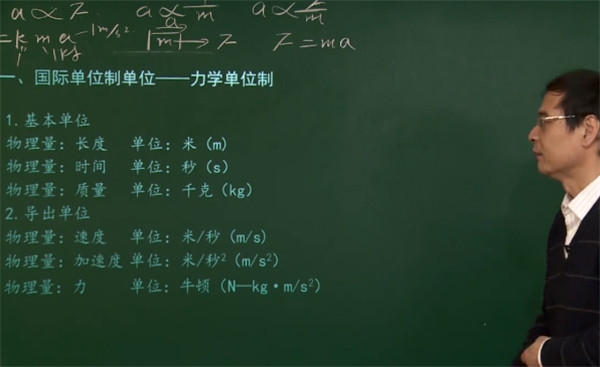 a ∝ F   a ∝ 1/m   a ∝ F/m
= k m a   1m/s²   a   m → F   F = ma
1   1kg
一、国际单位制单位——力学单位制
1.基本单位
物理量：长度 单位：米（m）
物理量：时间 单位：秒（s）
物理量：质量 单位：千克（kg）
2.导出单位
物理量：速度 单位：米/秒（m/s）
物理量：加速度 单位：米/秒²（m/s²）
物理量：力 单位：牛顿（N—kg·m/s²）